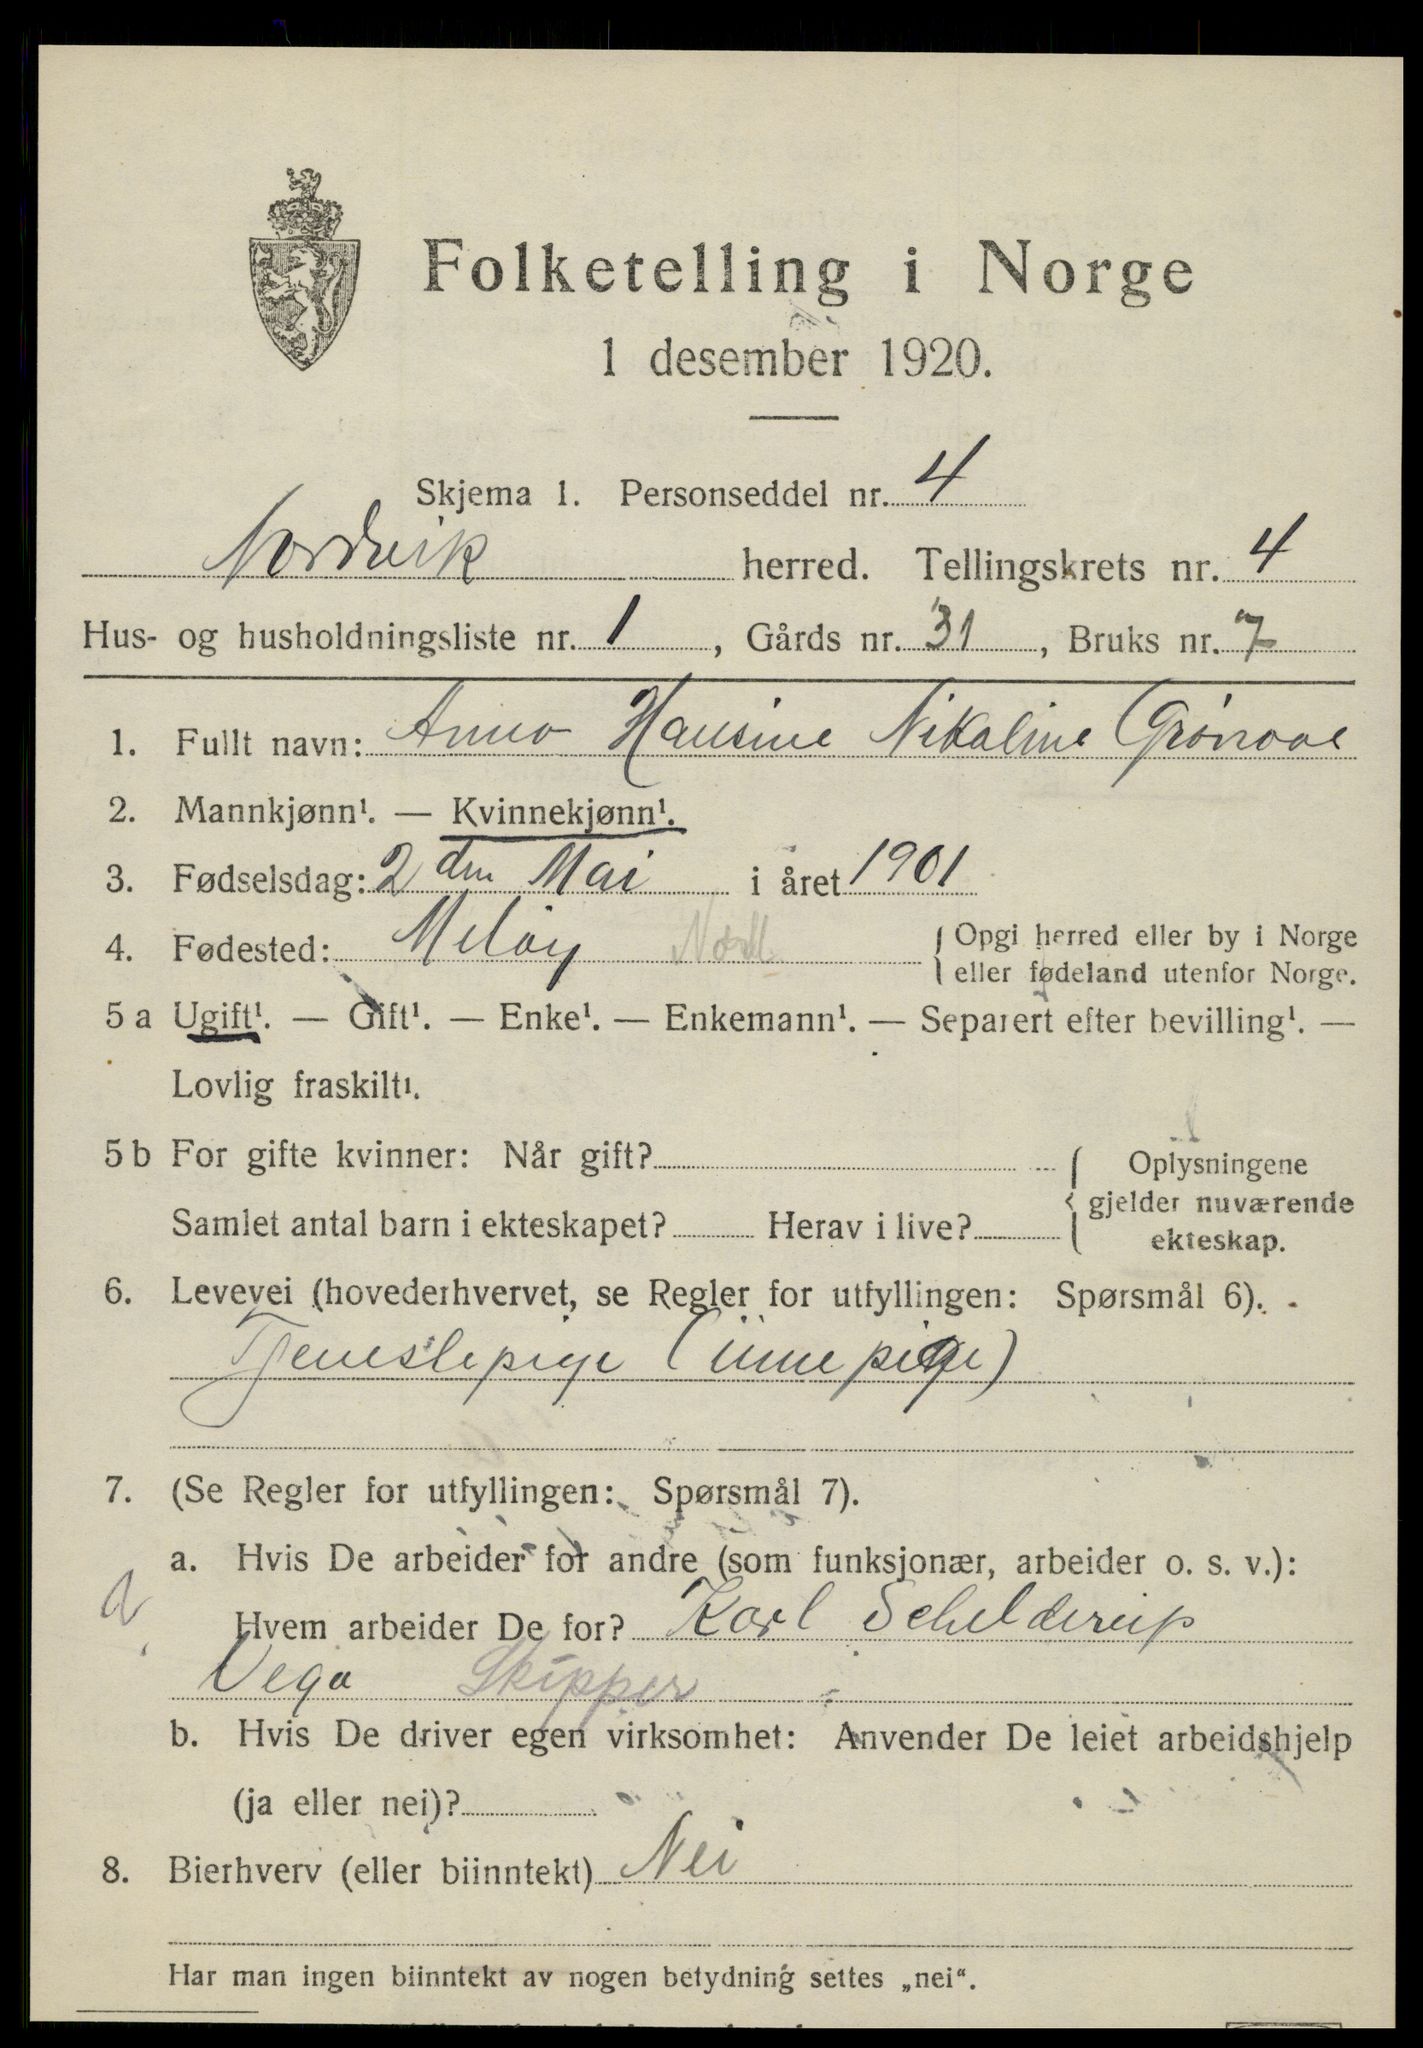 Folketelling i Norge
1 desember 1920.
Skjema 1. Personseddel nr. 4
Nordvik herred. Tellingskrets nr. 4
Hus- og husholdningsliste nr. 1, Gårds nr. 31, Bruks nr. 7
1. Fullt navn: Anna Hansine Nikoline Grönaae
2. Mannkjønn¹. — Kvinnekjønn¹.
3. Fødselsdag: 2 den Mai i året 1901
4. Fødested: Melöy Nordl. { Opgi herred eller by i Norge
eller fødeland utenfor Norge.
5 a Ugift¹. — Gift¹. — Enke¹. — Enkemann¹. — Separert efter bevilling¹. —
Lovlig fraskilt¹.
5 b For gifte kvinner: Når gift? { Oplysningene
gjelder nuværende
Samlet antal barn i ekteskapet? Herav i live?
ekteskap.
6. Levevei (hovederhvervet, se Regler for utfyllingen: Spørsmål 6).
Tjenestepige (innepige)
7. (Se Regler for utfyllingen: Spørsmål 7).
a. Hvis De arbeider for andre (som funksjonær, arbeider o. s. v.):
Hvem arbeider De for? Karl Schelderup
Vega Skipper
b. Hvis De driver egen virksomhet: Anvender De leiet arbeidshjelp
(ja eller nei)?
8. Bierhverv (eller biinntekt) Nei
Har man ingen biinntekt av nogen betydning settes „nei“.